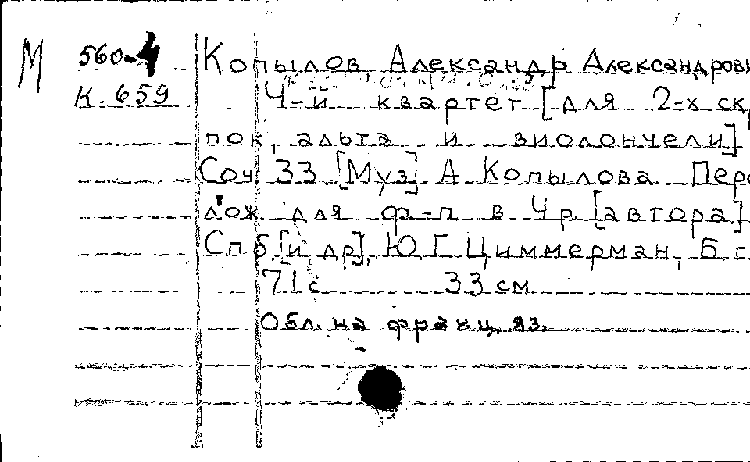 М 560-4 Копылов Александр Александрови
К. 659 4-й квартет [для 2-х скр
пок, альта и виолончели]
Соч 33 [Муз] А Копылова Пере
лож для ф-п в 4 р. [автора]
Спб [и др], Ю. Г. Циммерман, Б г.
71 с 33 см
Обл. на франц. яз.